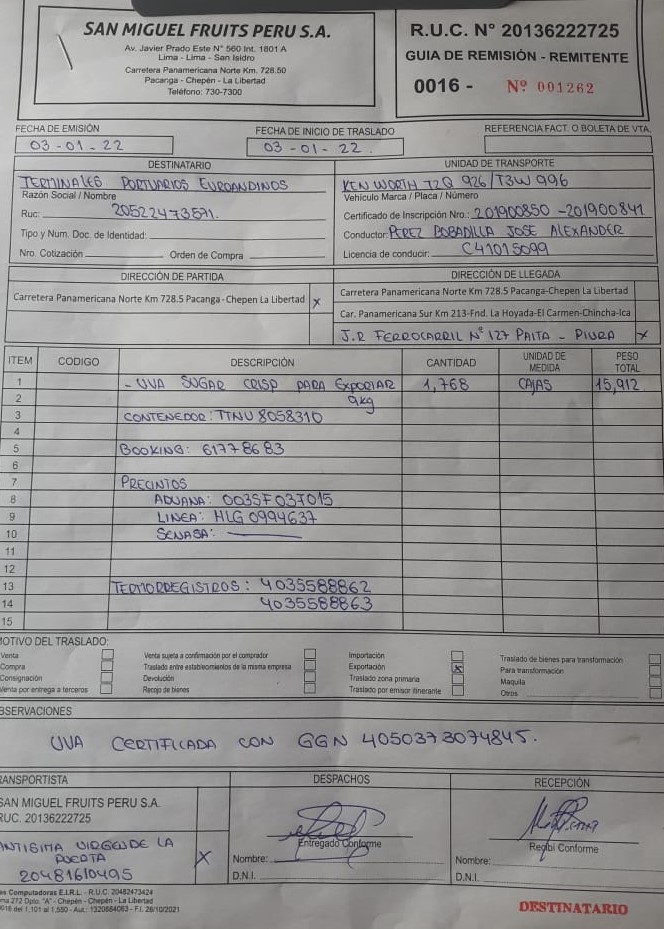 SAN MIGUEL FRUITS PERU S.A.
Av. Javier Prado Este N° 560 Int. 1801 A
Lima - Lima - San Isidro
Carretera Panamericana Norte Km. 728.50
Pacanga - Chepén - La Libertad
Teléfono: 730-7300
R.U.C. N° 20136222725
GUIA DE REMISIÓN - REMITENTE
0016 - Nº 001262
FECHA DE EMISIÓN
03-01-22
FECHA DE INICIO DE TRASLADO
03-01-22.
REFERENCIA FACT. O BOLETA DE VTA.
DESTINATARIO
TERMINALES PORTUARIOS EUROANDINOS
Razón Social / Nombre
Ruc: 20522473571.
Tipo y Num. Doc. de Identidad:
Nro. Cotización Orden de Compra
UNIDAD DE TRANSPORTE
KENWORTH T2Q 926/T3W 996
Vehículo Marca / Placa / Número
Certificado de Inscripción Nro.: 201900850-201900841
Conductor: PEREZ BOBADILLA JOSE ALEXANDER
Licencia de conducir: C41015099
DIRECCIÓN DE PARTIDA
Carretera Panamericana Norte Km 728.5 Pacanga-Chepen La Libertad x
DIRECCIÓN DE LLEGADA
Carretera Panamericana Norte Km 728.5 Pacanga-Chepen La Libertad
Car. Panamericana Sur Km 213-Fnd. La Hoyada-El Carmen-Chincha-Ica
J.R FERROCARRIL N° 127 PAITA - PIURA x
ITEM CODIGO DESCRIPCIÓN CANTIDAD UNIDAD DE MEDIDA PESO TOTAL
1 - UVA SUGAR CRISP PARA Exportar 1,768 CAJAS 15,912.
2 9kg
3 CONTENEDOR: TTNU 8058310
4
5 BOOKING: 61778683
6
7 PRECINTOS
8 ADUANA: 0035F037015
9 LINEA: HLG 0994637
10 SENASA:
11
12
13 TERMORREGISTROS: 4035588862
14 4035588863
15
MOTIVO DEL TRASLADO:
Venta
Compra
Consignación
Venta por entrega a terceros
Venta sujeta a confirmación por el comprador
Traslado entre establecimientos de la misma empresa
Devolución
Recojo de bienes
Importación
Exportación x
Traslado zona primaria
Traslado por emisor itinerante
Traslado de bienes para transformación
Para transformación
Maquila
Otros
OBSERVACIONES
UVA CERTIFICADA CON GGN 4050373074845.
TRANSPORTISTA
SAN MIGUEL FRUITS PERU S.A.
RUC. 20136222725
ANTISIMA VIRGEN DE LA
PUERTA X
20481610495
DESPACHOS
Entregado Conforme
Nombre:
D.N.I.
RECEPCIÓN
Recibi Conforme
Nombre:
D.N.I.
Computadoras E.I.R.L. - R.U.C. 20482473424
272 Dpto. "A" - Chepén - Chepén - La Libertad
0016 del 1,101 al 1,550 - Aut.: 1320884063 - F.I. 28/10/2021
DESTINATARIO